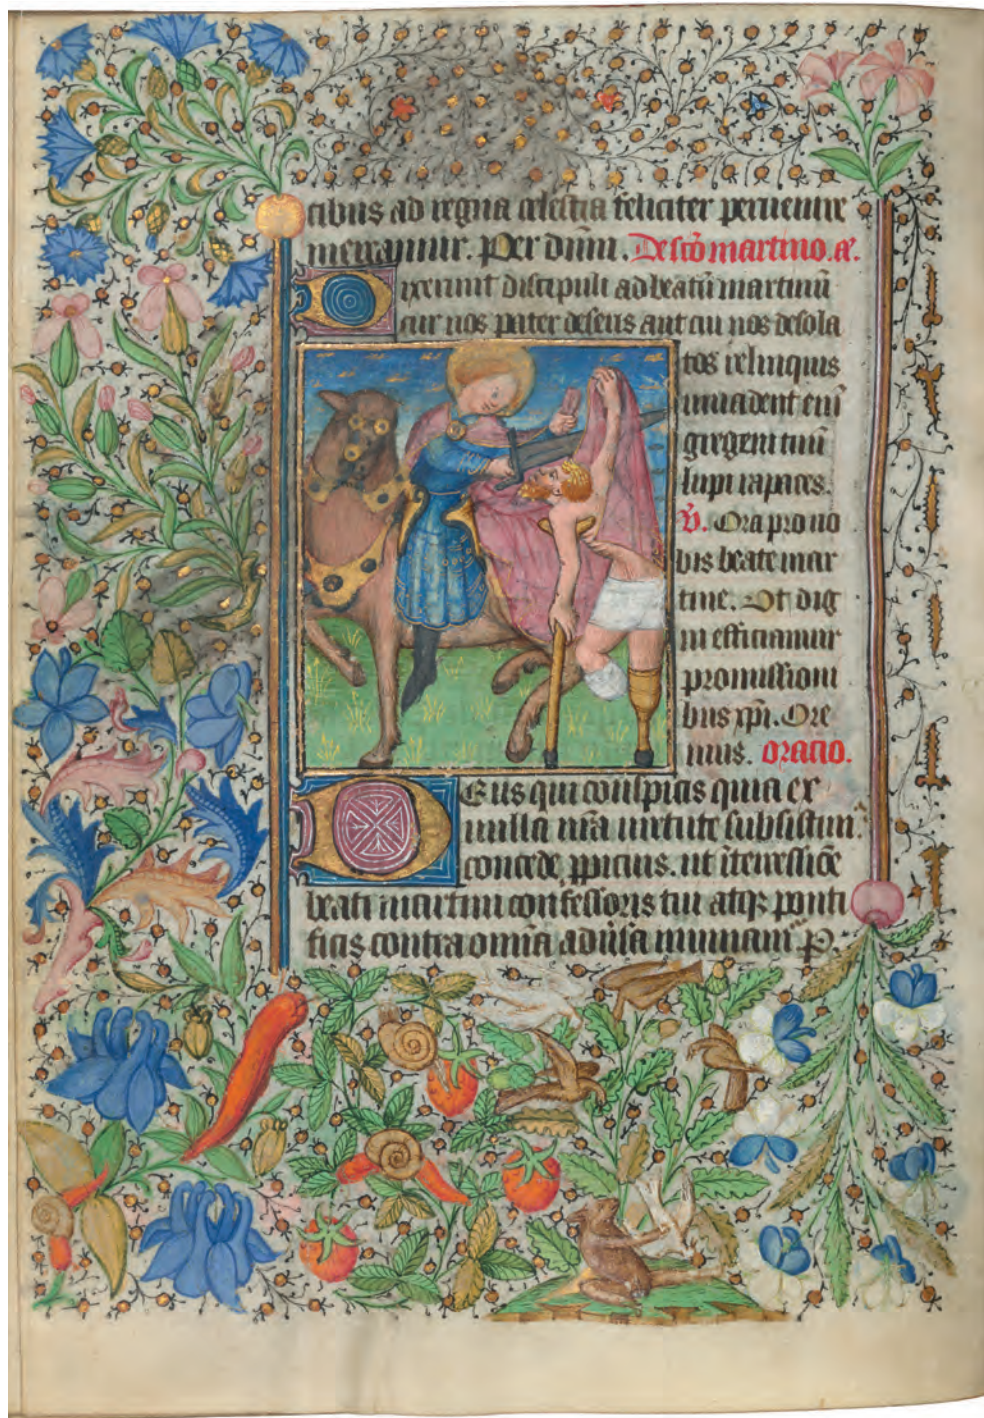 tibus ad regna celestia feliciter peruenire
mereamur. Per dnm. De sco martino. añ.
Dixerunt discipuli ad beatū martinū
cur nos pater deseris aut cui nos desola
tos relinquis
inuadent eni
gregem tuū
lupi rapaces.
V. Ora pro no
bis beate mar
tine. Ut dig
ni efficiamur
promissioni
bus xp̄i. Ore
mus. oratio.
Deus qui conspicis quia ex
nulla nr̄a uirtute subsistim9
concede ꝓpicius. ut īter̄cessiōe
beati martini confessoris tui atqꝫ ponti
ficis contra omīa aduersa muniamr̄ P.